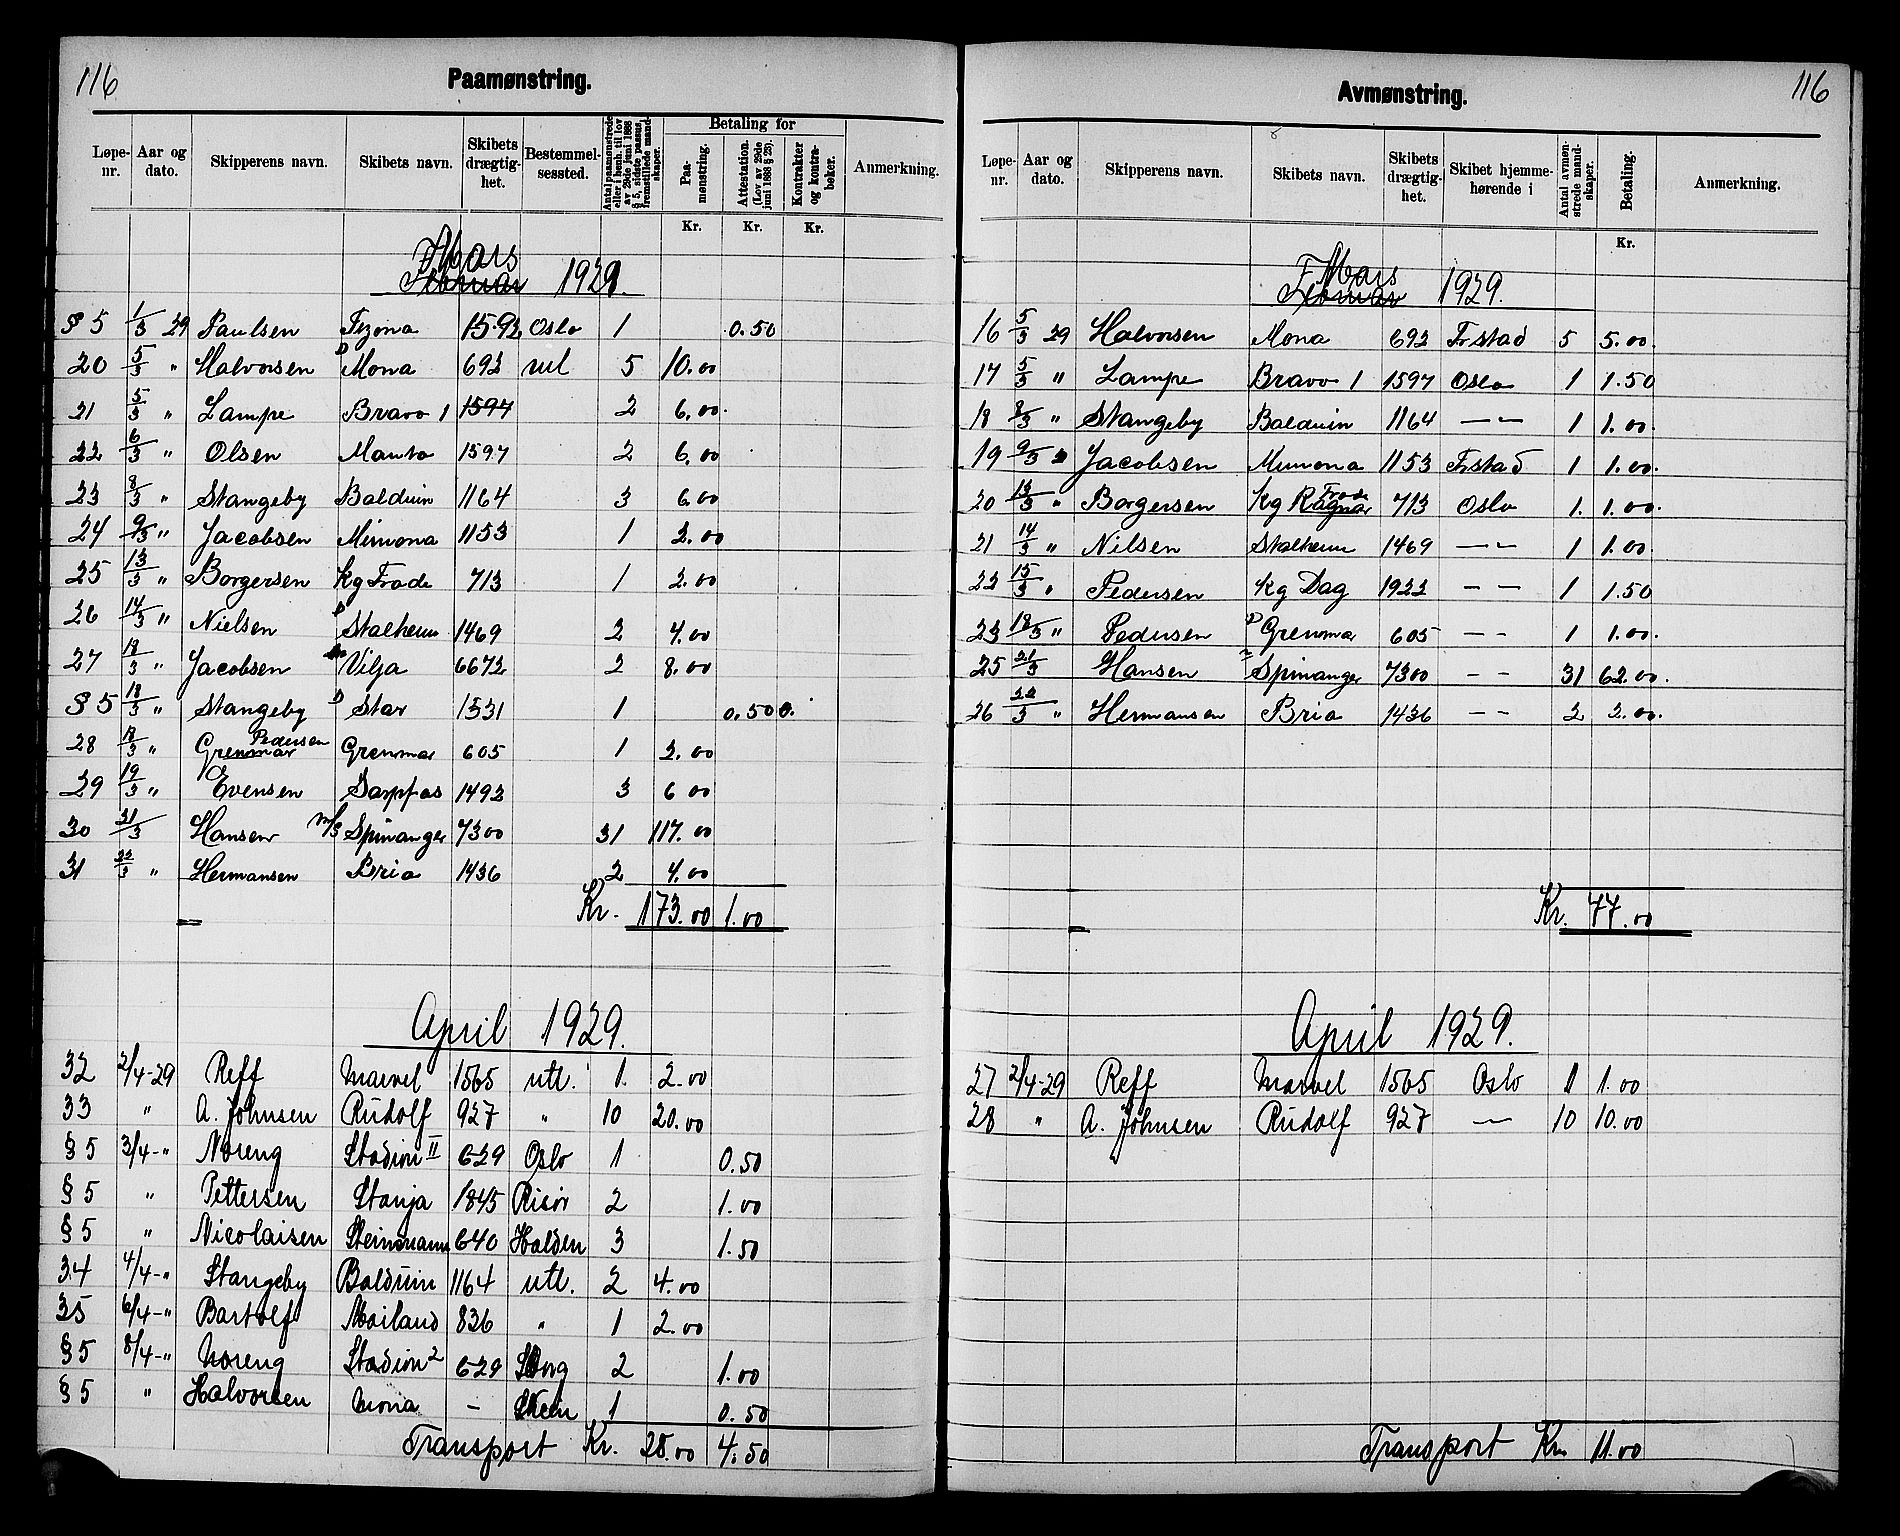 116
Paamønstring.
Løpe-nr. Aar og dato. Skipperens navn. Skibets navn. Skibets drægtig-het. Bestemmel-sessted. Antal paamønstrede eller i henh. til lov av 29de juni 1888 § 5, sidste passus, fremstillede mand-skaper. Betaling for Paa-mønstring. Attestation. (Lov av 29de juni 1888 § 25). Kontrakter og kontra-bøker. Anmerkning.
Kr. Kr. Kr.
Mars
Februar 1929.
§ 5 1/3 29 Paulsen Fezona 1592 Oslo 1 0.50
20 5/3 " Halvorsen D Mona 692 utl 5 10.00
21 5/3 " Lampe Bravo 1 1597 2 6.00.
22 6/3 " Olsen 1597 2 6.00
23 8/3 " Stangeby Balduin 1164 3 6.00
24 9/3 " Jacobsen Mimona 1153 1 2.00
25 13/3 " Borgersen Kg Frode 713 1 2.00
26 14/3 " Nielsen D Stalheim 1469 2 4.00
27 18/3 " Jacobsen Vilja 6672 2 8.00
§ 5 18/3 " Stangeby D Star 1331 1 0.50
28 18/3 " Pedersen Grenmar Grenmar 605 1 2.00
29 19/3 " Evensen Sarpfos 1492 3 6 00
30 21/3 Hansen m/s Spinanger 7300 31 117.00
31 22/3 " Hermansen Bria 1436 2 4.00
Kr. 173.00 1.00
April 1929.
32 2/4-29 Reff Marvel 1565 utl. 1. 2.00
33 " A. Johnsen Rudolf 927 " 10 20.00
§ 5 3/4-" Noreng Stadion II 629 Oslo 1 0.50
§ 5 " Pettersen Stanja 1845 Risör 2 1.00
§ 5 " Nicolaisen Steinmann 640 Halden 3 1.50
34 4/4-" Stangeby Balduin 1164 utl. 2 4.00
35 6/4-" Bartolf Mailand 836 " 1 2.00
§ 5 8/4-" Noreng Stadion 2 629 2 1.00
§ 5 " Halvorsen Mona - 1 0.50
Transport Kr. 28.00 4.50
116
Avmønstring.
Løpe-nr. Aar og dato. Skipperens navn. Skibets navn. Skibets drægtig-het. Skibet hjemme-hørende i Antal avmøn-strede mand-skaper. Betaling. Anmerkning.
Kr.
Mars
Februar 1929.
16 5/3 29 Halvorsen Mona 692 Frstad 5 5.00.
17 5/3 " Lampe Bravo 1 1597 Oslo 1 1.50
18 8/3 " Stangeby Balduin 1164 -"- 1 1.00.
19 9/3 " Jacobsen Mimona 1153 Frstad 1 1.00.
20 13/3 " Borgersen Kg Frode Ragnar 713 Oslo 1. 1.00.
21 14/3 " Nilsen Stalheim 1469 -"- 1 1.00.
22 15/3 " Pedersen Kg Dag 1922 - - 1 1.50
23 18/3 " Pedersen D Grenmar 605 - - 1 1.00.
25 21/3 Hansen Spinanger 7300 - - 31 62.00.
26 22/3 " Hermansen Bria 1436 - - 2 2.00.
Kr. 77.00
April 1929.
27 2/4-29 Reff Marvel 1565 Oslo 1 1.00
28 " A. Johnsen Rudolf 927 -"- 10 10.00
Transport Kr. 11.00